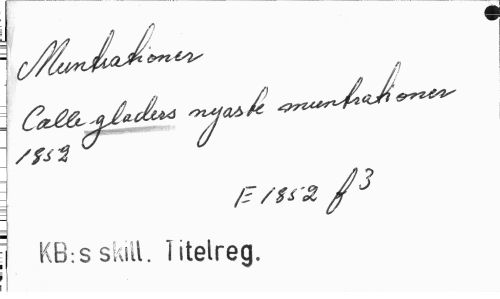 Muntrationer
Calle gladers nyaste muntrationer
1852
E 1852 f 3
KB:s skill. Titelreg.